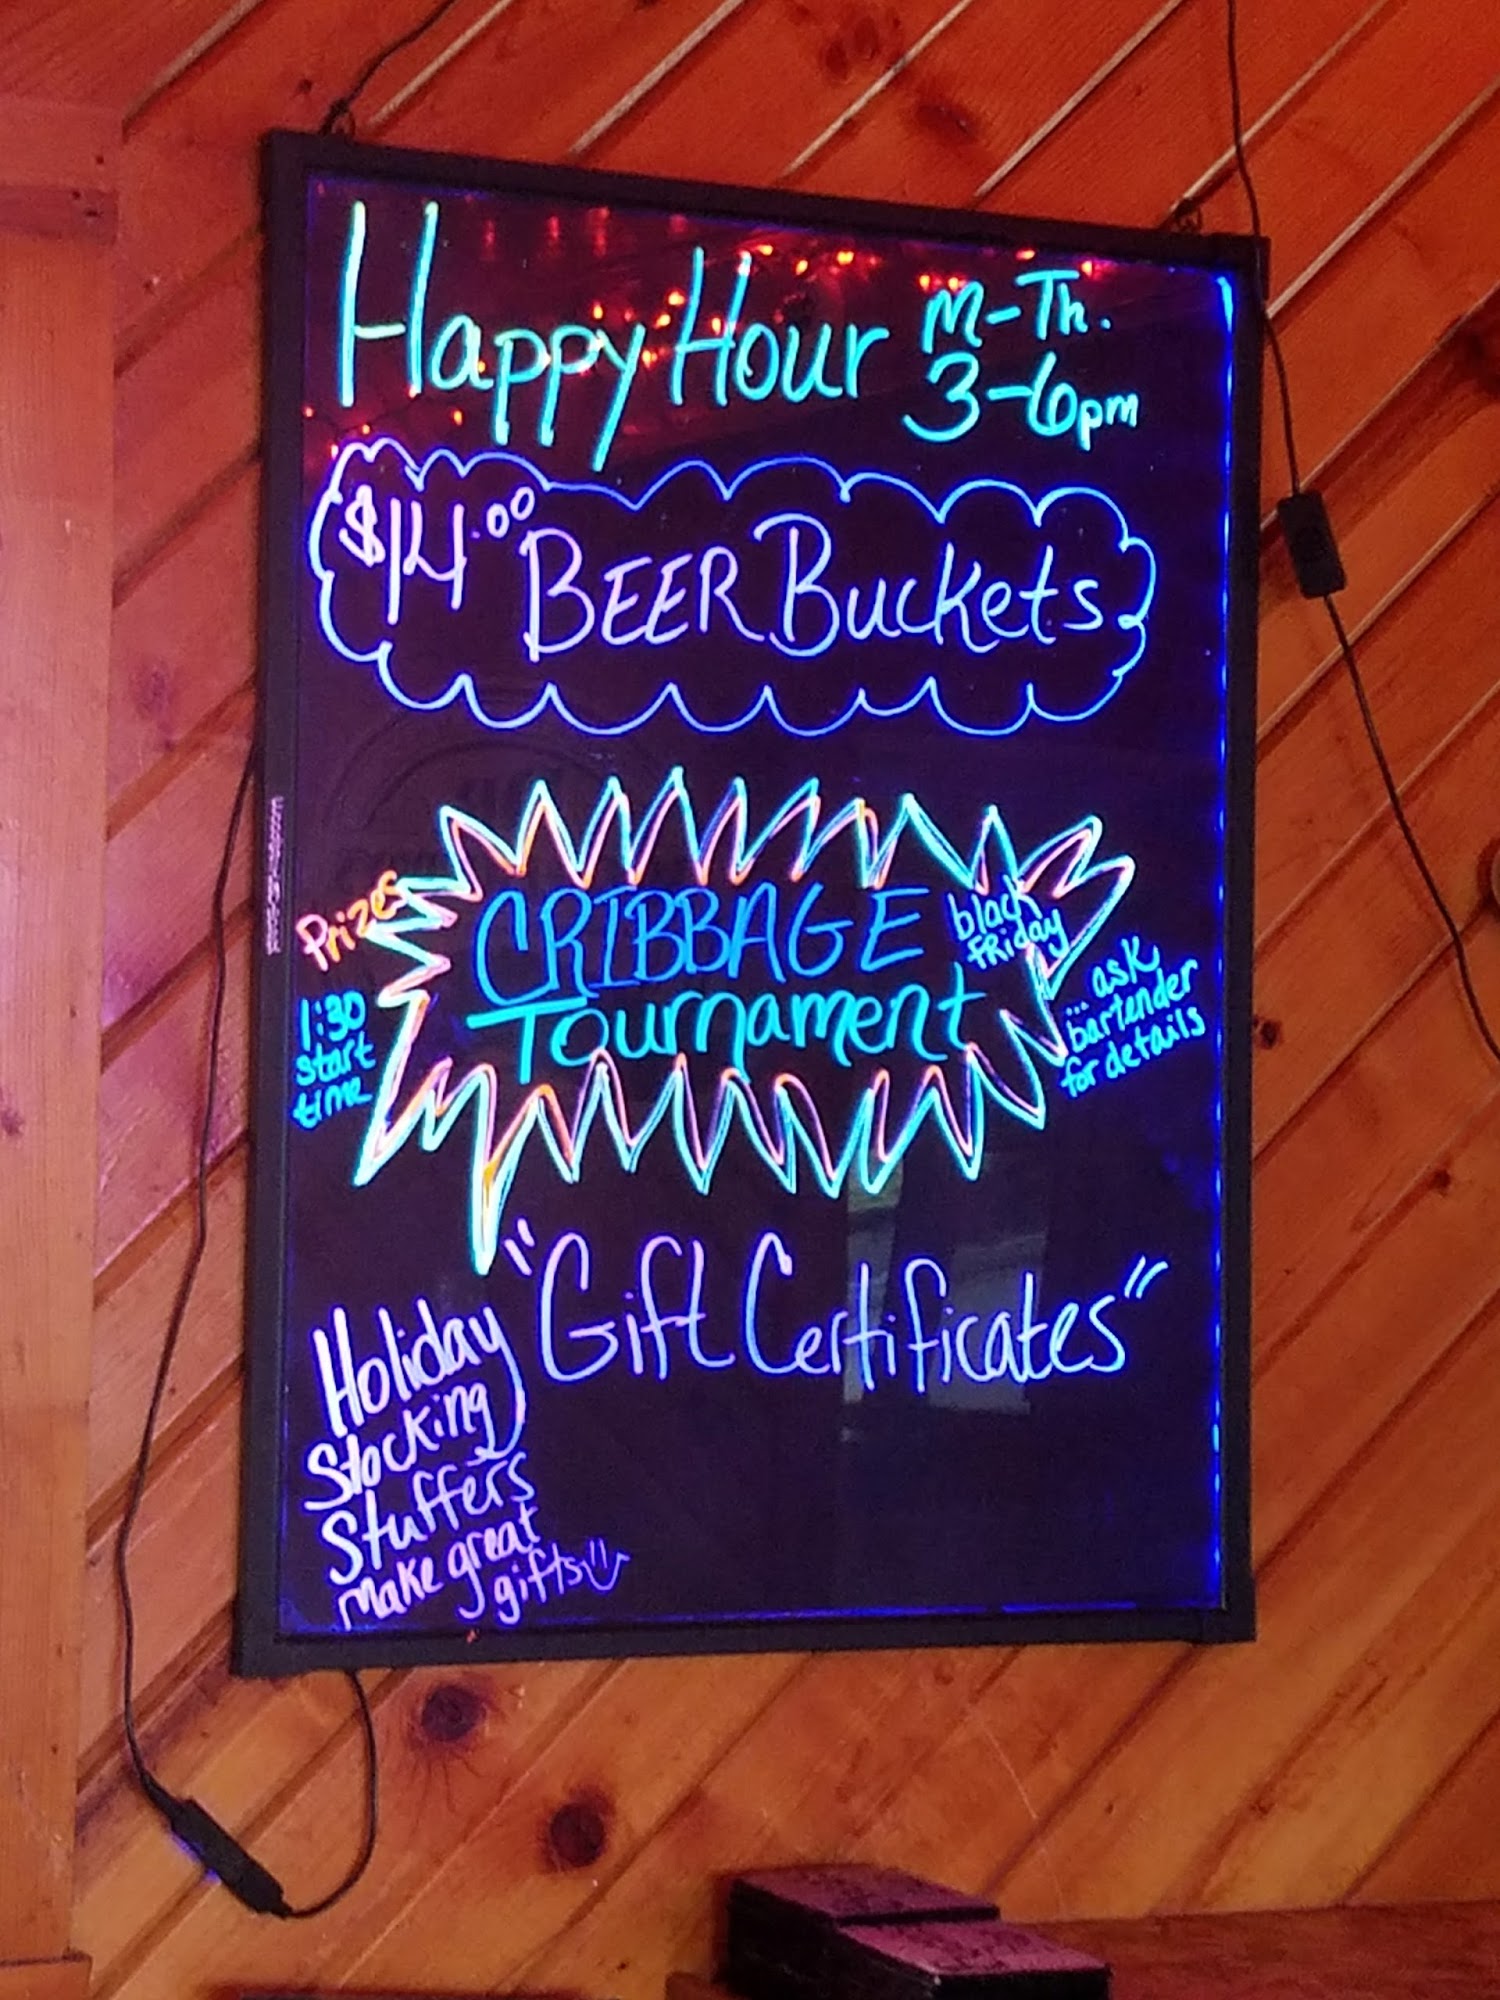 Happy Hour M-Th.
3-6pm
$14.00 BEER Buckets
Prizes
1:30
start
time
CRIBBAGE
Tournament
black
FRiday
... ask
bartender
for details
"Gift Certificates"
Holiday
Stocking
Stuffers
make great
gifts